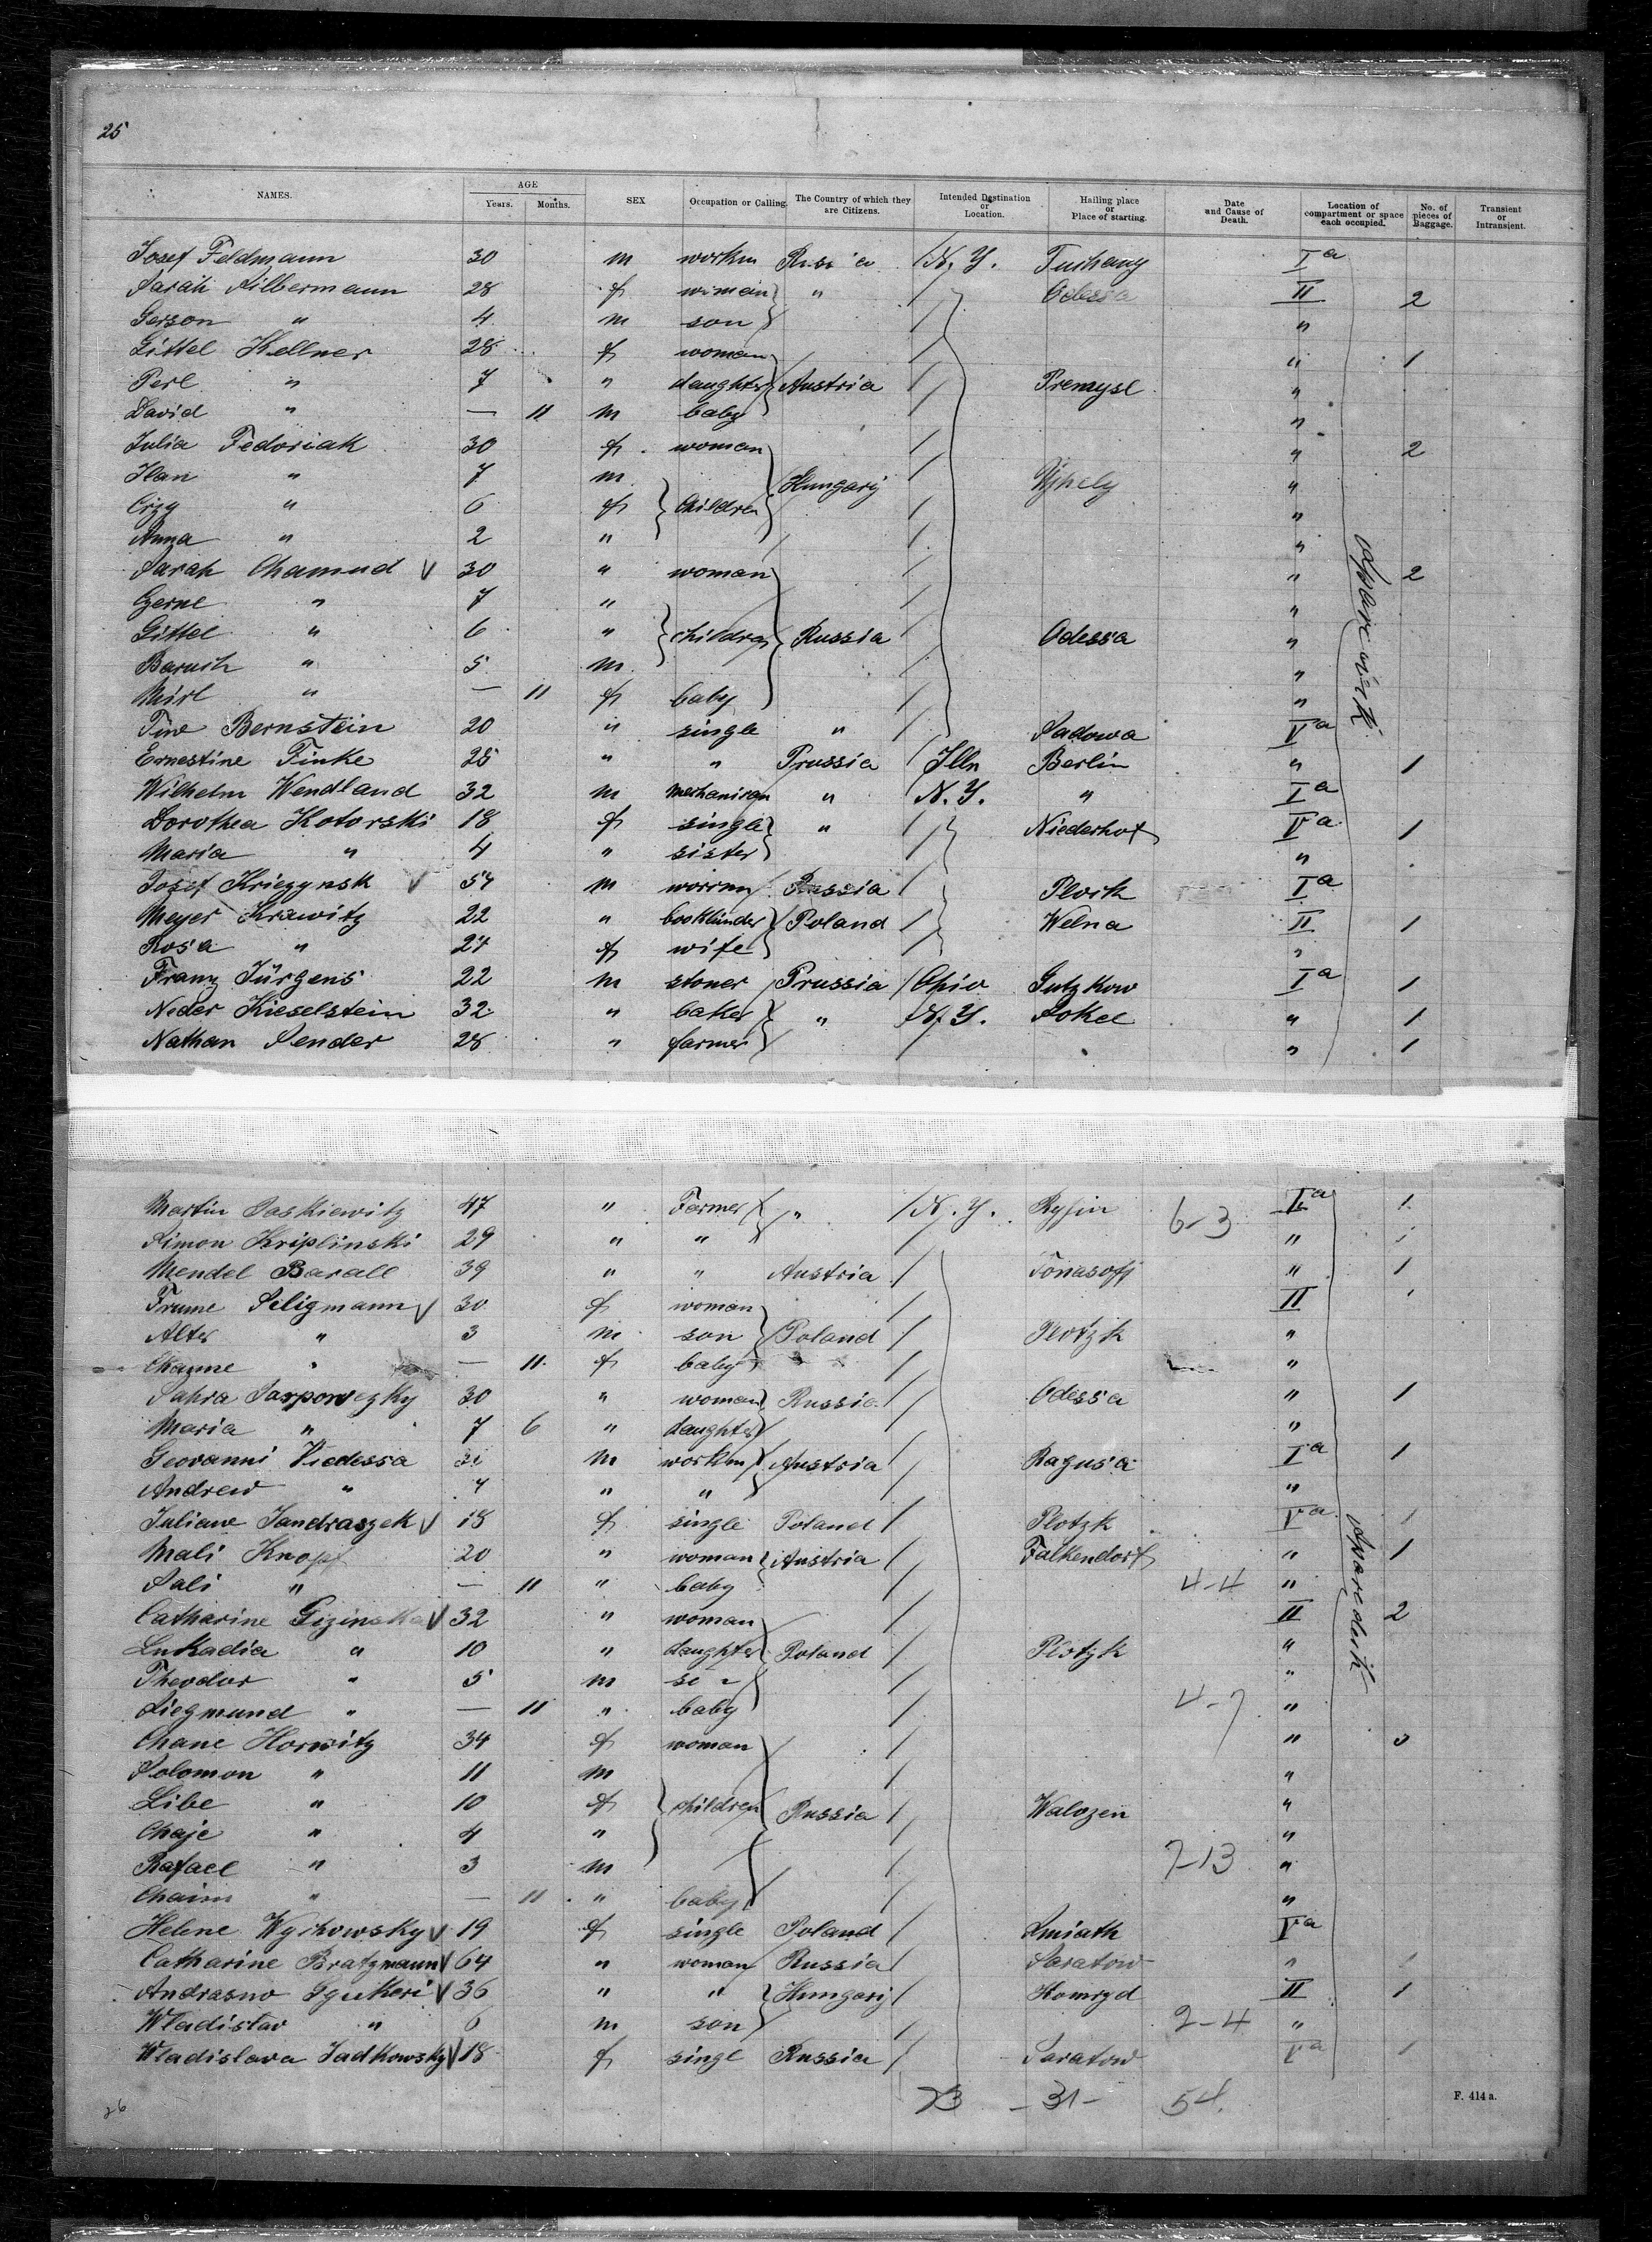 25
NAMES. AGE Years. Months. SEX Occupation or Calling. The Country of which they are Citizens. Intended Destination or Location. Hailing place or Place of starting. Date and Cause of Death. Location of compartment or space each occupied. No. of pieces of Baggage. Transient or Intransient.
Josef Feldmann 30 m workm Russia / N. Y. I a
Sarah Silbermann 28 f woman " / Odessa II 2
Gerson " 4 m son / "
Gittel Kellner 28 f woman / " 1
Perl " 7 " daughter Austria / Premysl "
David " — 11 m baby / "
Julia Fedoriak 30 f woman / " 2
Ilan " 7 m Hungary / Ujhely "
" 6 f children / "
Anna " 2 " / "
Sarah Chamud V 30 " woman / " 2
Czerne " 7 " / "
Gittel " 6 " children Russia / Odessa "
Baruch " 5 m / "
Mirl " — 11 f baby / "
Tine Bernstein 20 " single " / Sadowa V a
Ernestine Finke 25 " " Prussia / Illn Berlin " 1
Wilhelm Wendland 32 m mechanican " N. Y. " I a
Dorothea Kotorski 18 f single " / Niederhof V a 1
Maria " 4 " sister / "
Josef Kriezynsk V 54 m Russia / Plock I a
Meyer Krawitz 22 " bookbinder Poland / Welna II 1
Rosa " 24 f wife / "
Franz Jürgens 22 m stoner Prussia / Ohio Gutzkow I a 1
Neder Kieselstein 32 " baker " N. Y. Sokel " 1
Nathan Sender 28 " farmer / " 1
Spare deck
Martin Jaskiewitz 47 " Farmer " / N. Y. Rypin 6-3 I a 1
Simon Kriplinski 29 " " / " 1
Mendel Barall 39 " " Austria / " 1
Frume Seligmann V 30 f woman / II 1
Alter " 3 m son Poland / Plotzk "
Channe " — 11 f baby / "
Sahra Jasponwezky 30 " woman Russia / Odessa " 1
Maria " 7 6 " daughter / "
Geovanni Viedessa 31 m workm Austria / Ragusa I a 1
Andrew " 4 " " / "
Juliane Jandraszek V 18 f single Poland / Plotzk V a 1
Mali Knopf 20 " woman Austria / Falkendorf " 1
Sali " — 11 " baby / 4-4 "
Catharine Gizinska V 32 " woman / II 2
Lukadia " 10 " daughter Poland / Plotzk "
Theodor " 5 m son / "
Siegmund " — 11 " baby / 4-7 "
Chane Horwitz 34 f woman / " 3
Solomon " 11 m / "
Libe " 10 f children Russia / Walozen "
Chaje " 4 " / "
Rafael " 3 m / 7-13 "
Chaim " — 11 " baby / "
Helene Wyihowsky V 19 f single Poland / V a
Catharine Bratzmann V 64 " woman Russia / Saratow " 1
Andrasno V 36 " " Hungary / Komryd II 1
Wladislav " 6 m son / 2-4 "
Wladislava Jadkowsky V 18 f singl Russia / Saratow V a 1
Spare deck
23 - 31 - 54.
26
F. 414 a.